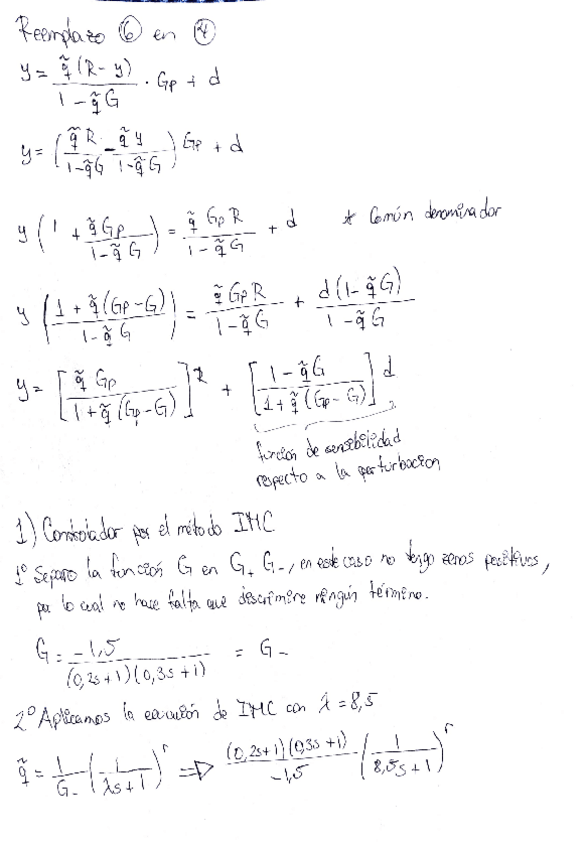 Reemplazo ⑥ en ④
y = q̃(R-y) / (1-q̃G) · Gp + d
y = (q̃R / (1-q̃G) - q̃y / (1-q̃G)) Gp + d
y (1 + q̃Gp / (1-q̃G)) = q̃GpR / (1-q̃G) + d * Común denominador
y ((1 + q̃(Gp-G)) / (1-q̃G)) = q̃GpR / (1-q̃G) + d(1-q̃G) / (1-q̃G)
y = [q̃Gp / (1+q̃(Gp-G))] R + [(1-q̃G) / (1+q̃(Gp-G))] d
función de sensibilidad
respecto a la perturbación
1) Controlador por el método IMC
1º Separo la función G en G+ G-, en este caso no tengo zeros positivos,
por lo cual no hace falta que discrimine ningún término.
G = -1,5 / ((0,2s+1)(0,3s+1)) = G-
2º Aplicamos la ecuación de IMC con λ = 8,5
q̃ = 1/G- (1/(λs+1))^r ⇒ (0,2s+1)(0,3s+1) / -1,5 · (1/(8,5s+1))^r